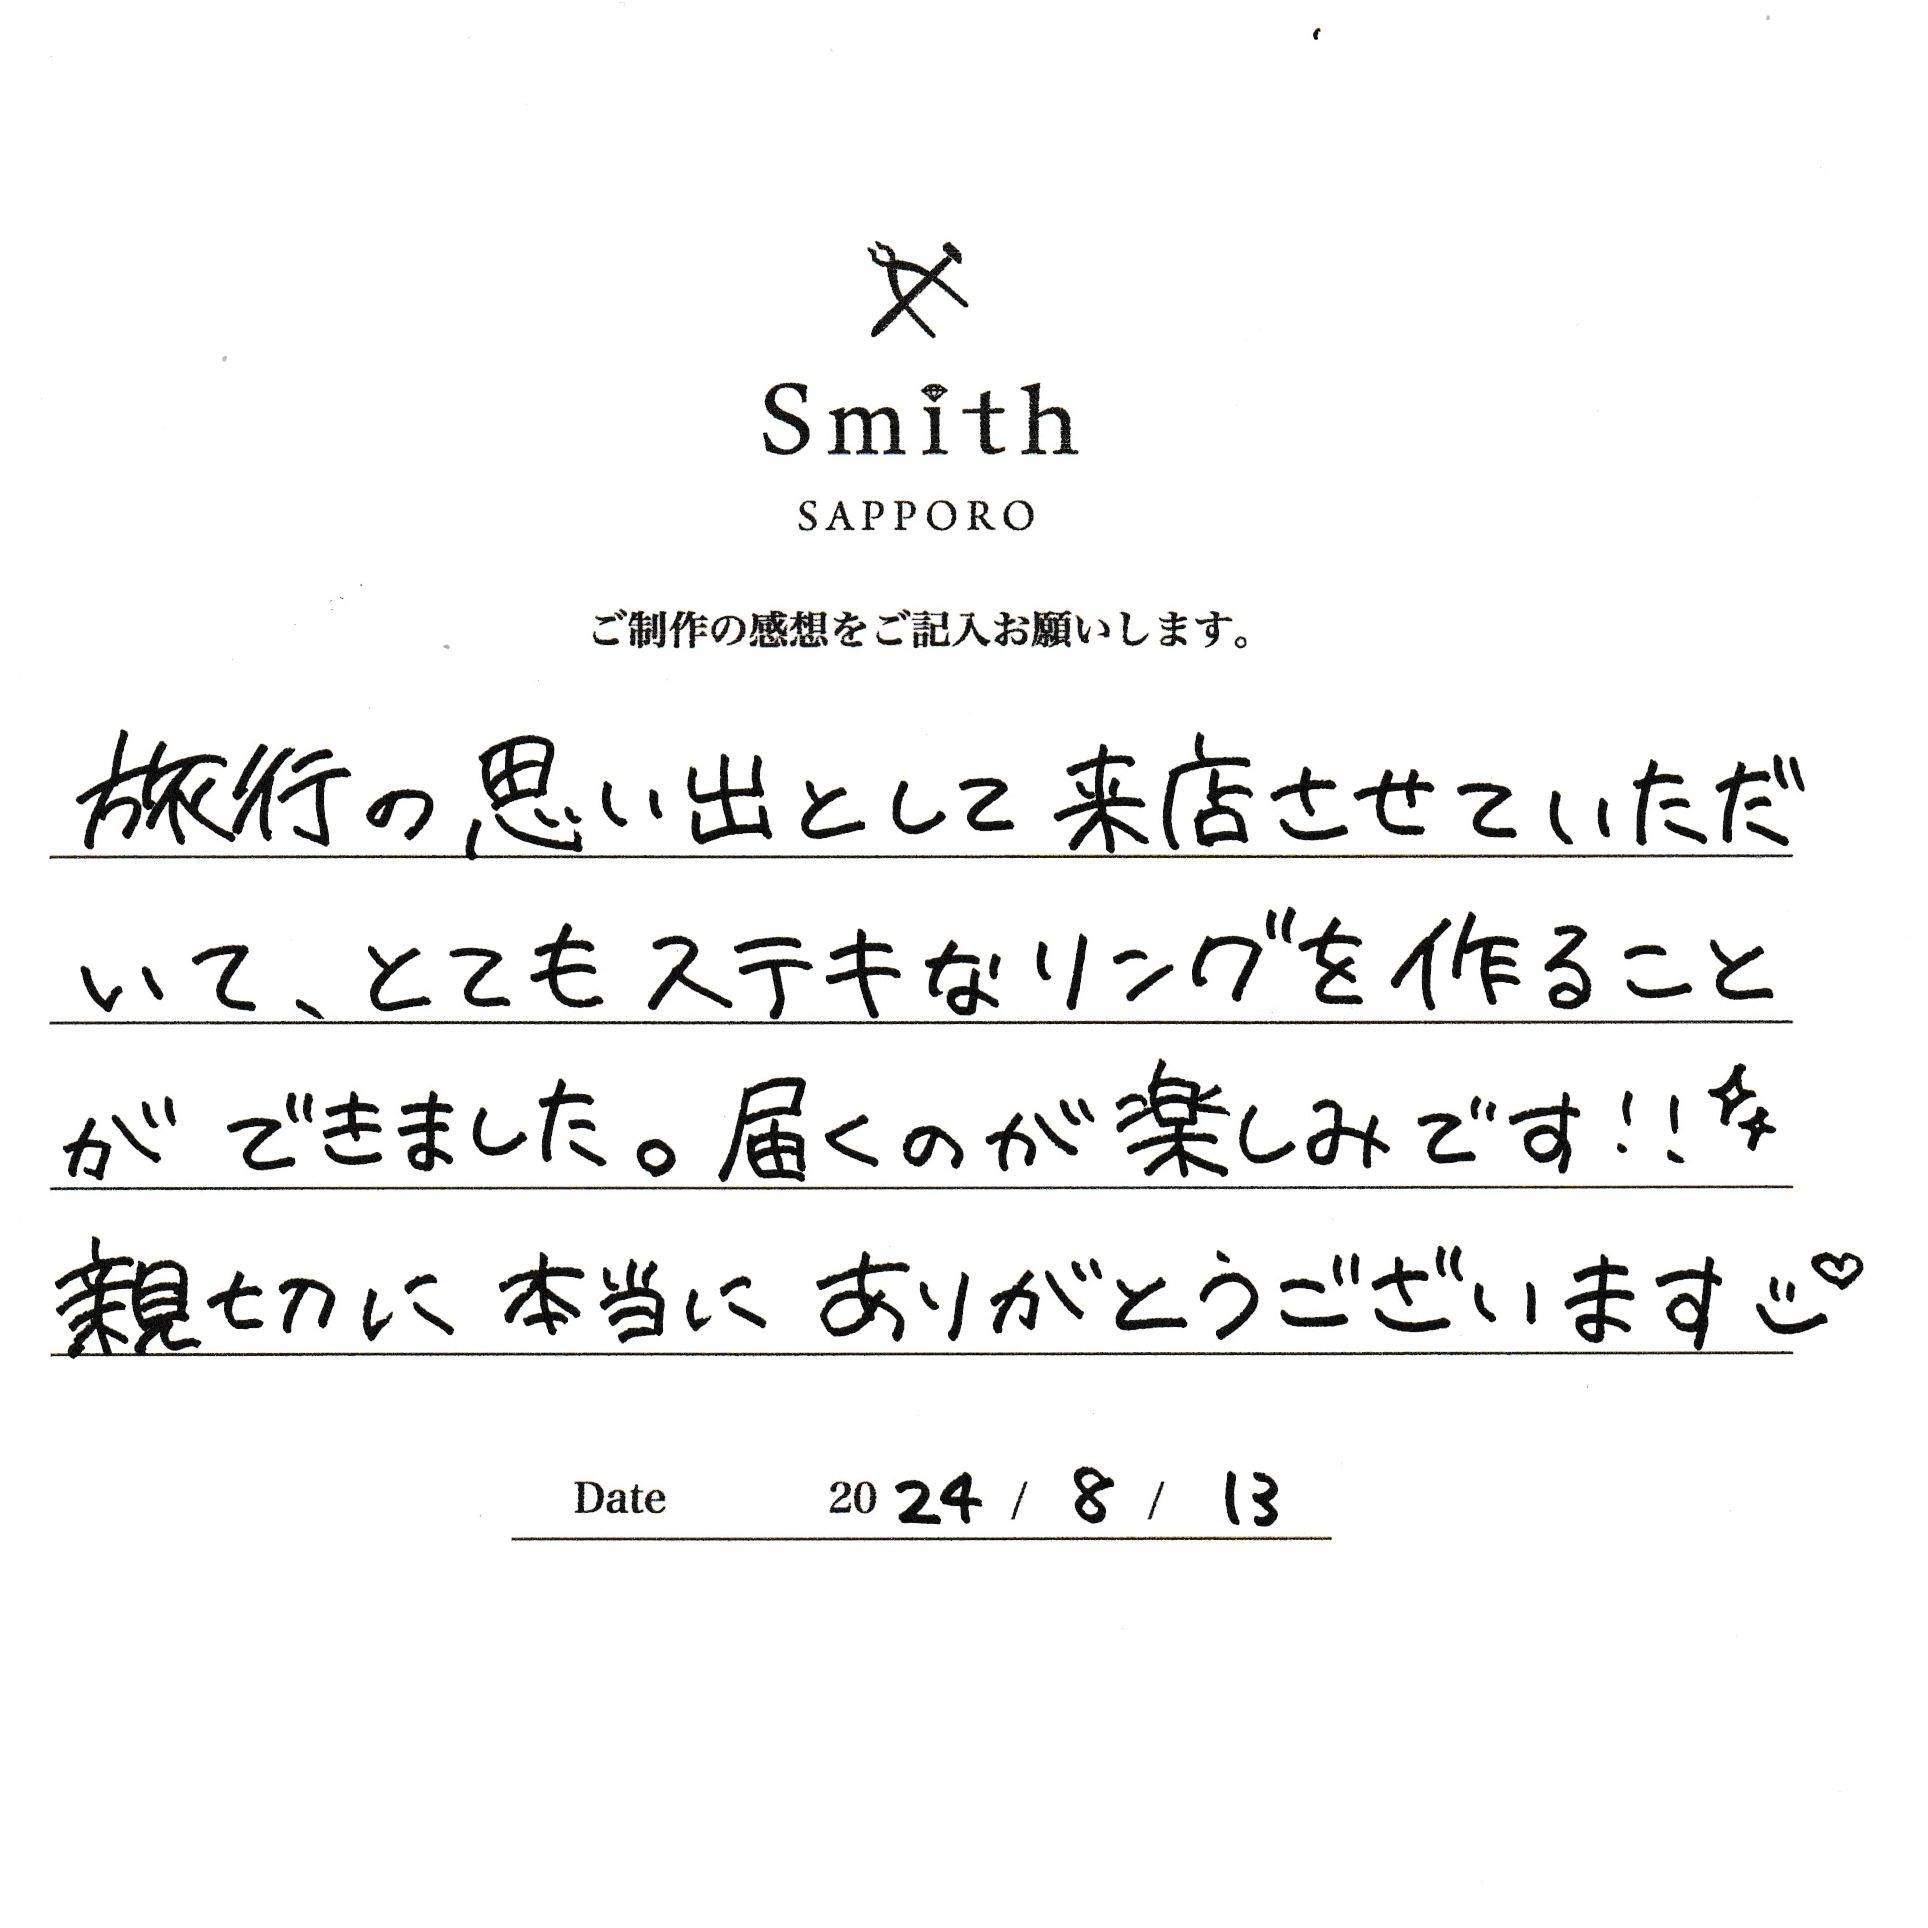 Smith
SAPPORO
ご制作の感想をご記入お願いします。
旅行の思い出として来店させていただ
いて、とてもステキなリングを作ること
ができました。届くのが楽しみです!!
親切に本当にありがとうございます
Date 2024 / 8 / 13